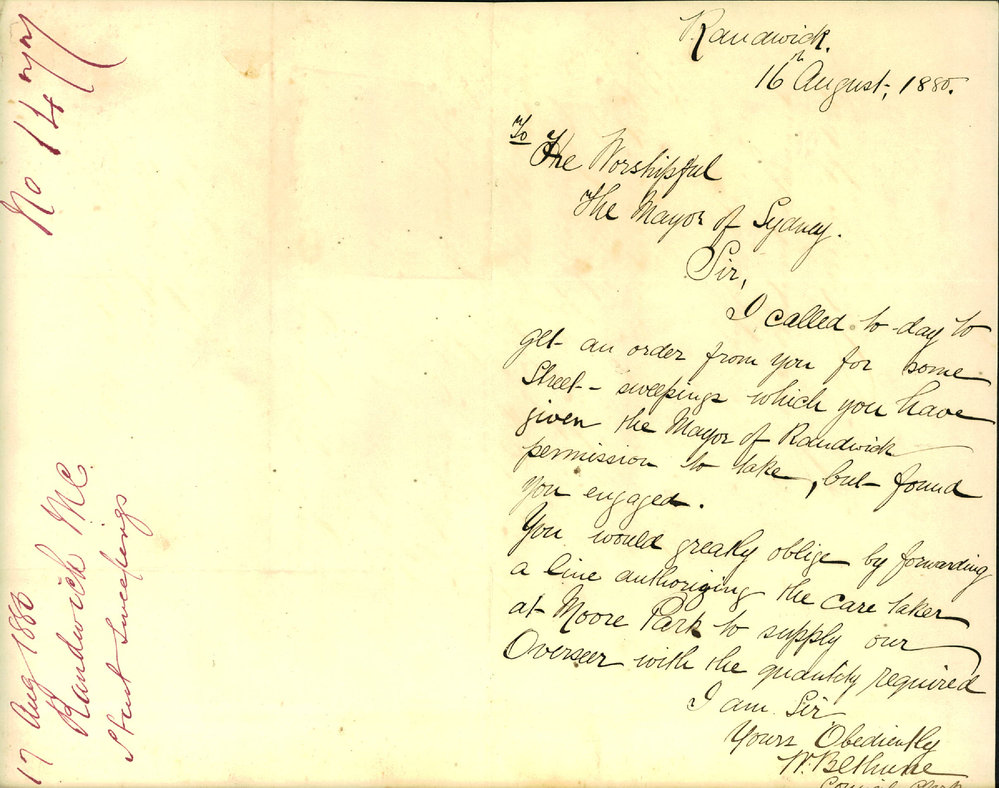 Randwick.
16th August, 1880.
To The Worshipful
The Mayor of Sydney.
Sir,
I called to-day to
get an order from you for some
Street-sweepings which you have
given the Mayor of Randwick
permission to take, but found
you engaged.
You would greatly oblige by forwarding
a line authorizing the care taker
at Moore Park to supply our
Overseer with the quantity required
I am Sir
Yours Obediently
W. Bethune
Council Clerk
No 14
17 Aug 1880
Randwick MC.
Street Sweepings